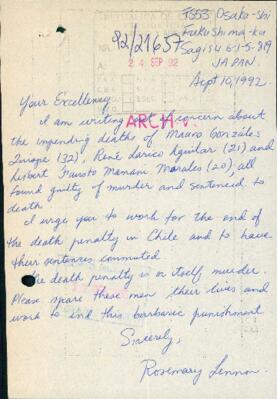 92/21657
24 SEP 92
ARCH
〒553 Osaka-shi
Fukushima-ku
Sagisu 6-1-5-819
JAPAN.
Sept 10, 1992
Your Excellency,
I am writing out of concern about
the impending deaths of Mauro Gonzáles
(32), René Larico Aguilar (21) and
Lisbert Fausto Mamani Morales (20), all
found guilty of murder and sentenced to
death.
I urge you to work for the end of
the death penalty in Chile and to have
their sentences commuted.
The death penalty is in itself murder.
Please spare these men their lives and
work to end this barbaric punishment
Sincerely,
Rosemary Lennon